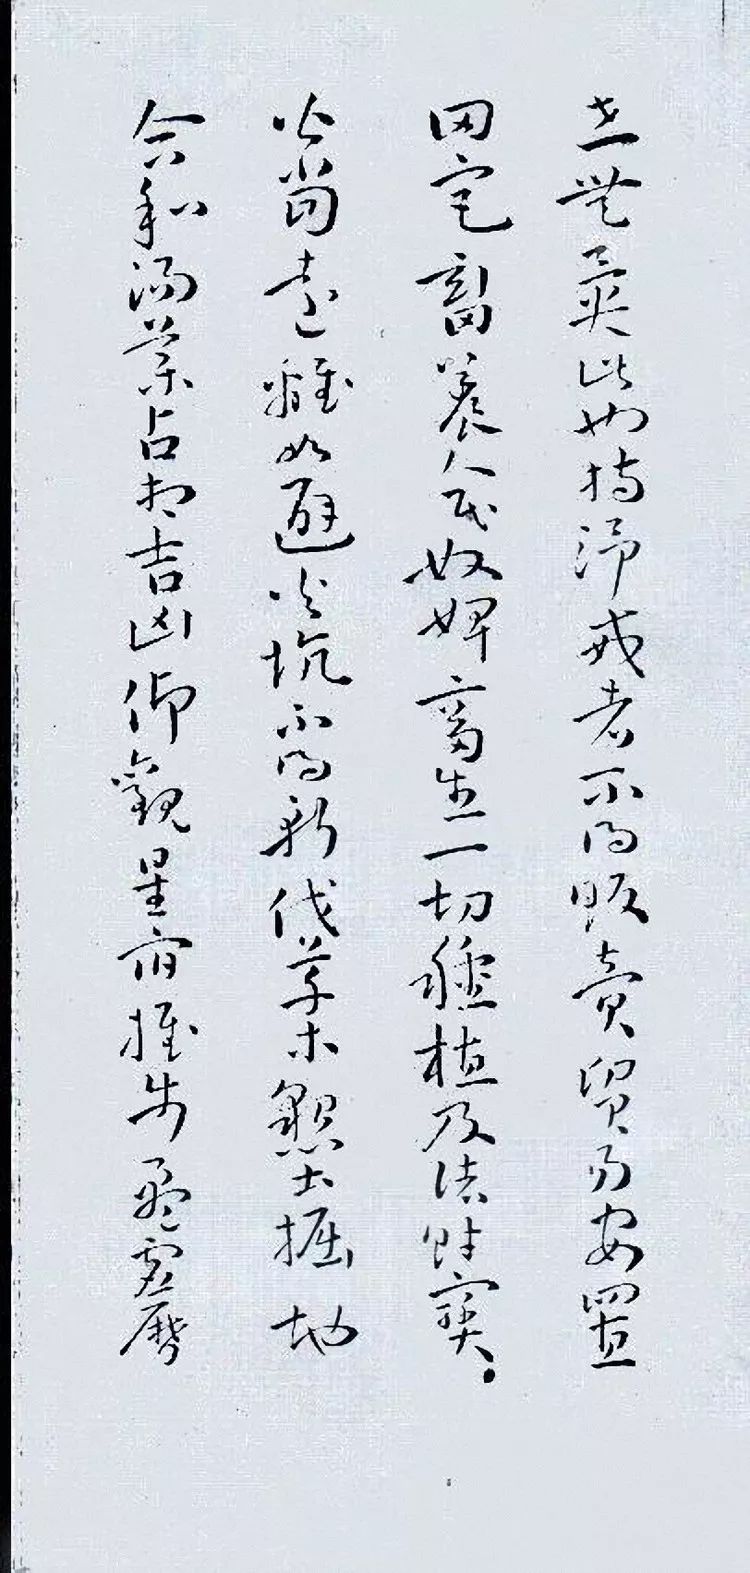 世無異此也持淨戒者不得販賣貿易安置
田宅畜養人民奴婢畜生一切種植及諸財寶。
皆當遠離如避火坑不得斬伐草木墾土掘地
合和湯藥占相吉凶仰觀星宿推步盈虛曆